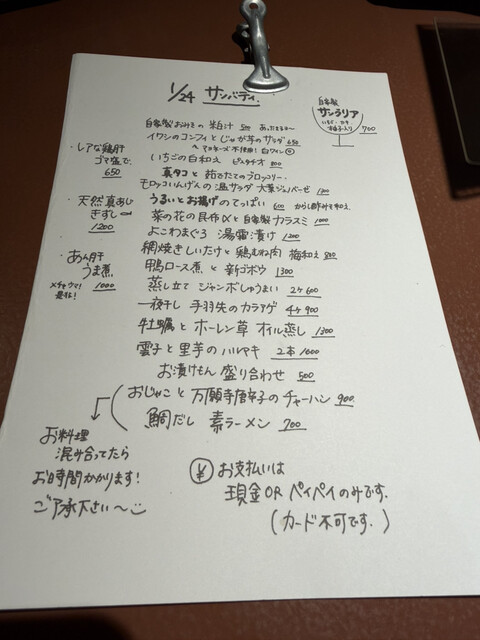 1/24 サンバティ.
自家製
サンラリア
いちご・カキ
柚子入り 700
自家製 おみその 粕汁 500 あったまる〜
イワシのコンフィと じゃが芋のサラダ 650
いちごの白和え ピスタチオ 800
真タコと 茹でたてのブロッコリー.
モロッコいんげんの温サラダ 大葉ジェノベーゼ 1200
うるいとお揚げの てっぱい 600 からし酢みそ和え
菜の花の昆布〆と 自家製 カラスミ 1000
よこわまぐろ 湯霜漬け 1200
網焼きしいたけと 鶏むね肉 梅和え 800
鴨ロース煮 と 新ゴボウ 1300
蒸し立て ジャンボしゅうまい 2ヶ600
一夜干し 手羽先のカラアゲ 4ヶ900
牡蠣と ホーレン草 オイル蒸し 1300
雲子と 里芋の ハルマキ 2本 1000
お漬けもん 盛り合わせ 500
おじゃこと 万願寺唐辛子の チャーハン 900
鯛だし 素ラーメン 700
・レアな鶏肝
ゴマ塩で.
650
・天然真あじ
きずし
1200
・あん肝
うま煮
メチャウマ! 1000
是非!
お料理
混み合ってたら
お時間かかります!
ご了承下さい〜
¥ お支払いは
現金 OR ペイペイのみです.
(カード不可です.)